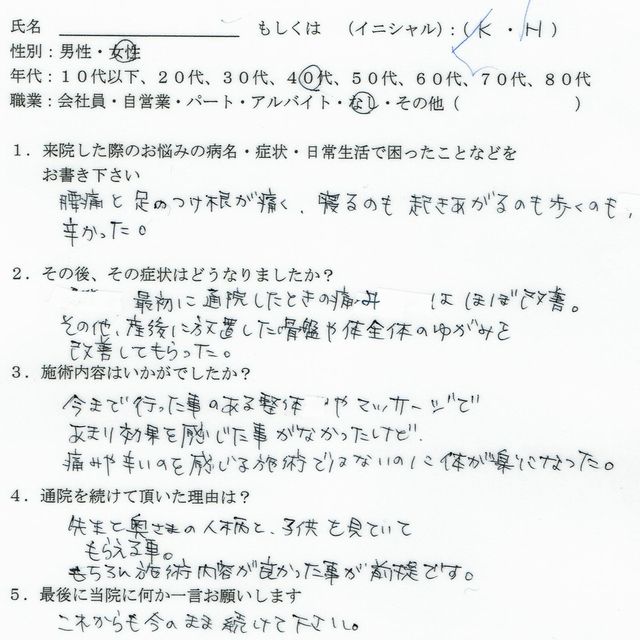 氏名 もしくは (イニシャル):( K ・ H )
性別:男性・女性
年代:10代以下、20代、30代、40代、50代、60代、70代、80代
職業:会社員・自営業・パート・アルバイト・なし・その他( )
1.来院した際のお悩みの病名・症状・日常生活で困ったことなどを
お書き下さい
腰痛と足のつけ根が痛く、寝るのも起きあがるのも歩くのも、
辛かった。
2.その後、その症状はどうなりましたか?
最初に通院したときの痛み はほぼ改善。
その他、産後に放置した骨盤や体全体のゆがみを
改善してもらった。
3.施術内容はいかがでしたか?
今まで行った事のある整体 やマッサージで
あまり効果を感じた事がなかったけど、
痛みや辛いのを感じる施術ではないのに体が楽になった。
4.通院を続けて頂いた理由は?
先生と奥さまの人柄と、子供を見ていて
もらえる事。
もちろん施術内容が良かった事が前提です。
5.最後に当院に何か一言お願いします
これからも今のまま続けて下さい。